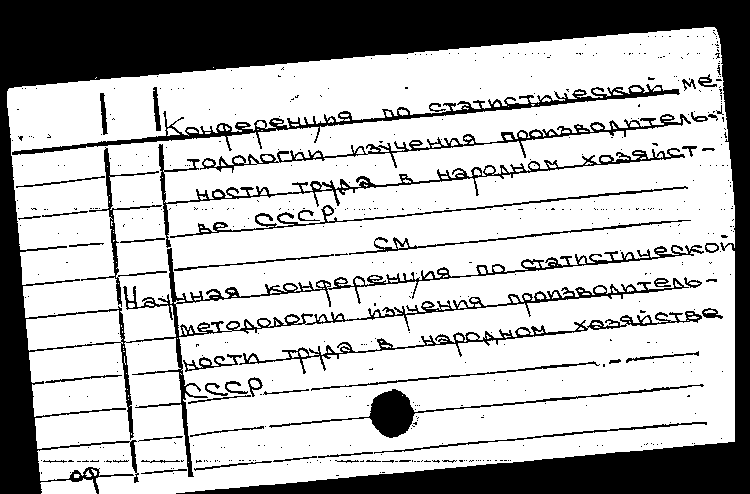 Конференция по статистической ме-
тодологии изучения производитель-
ности труда в народном хозяйст-
ве СССР
см.
Научная конференция по статистической
методологии изучения производитель-
ности труда в народном хозяйстве
СССР.
оф